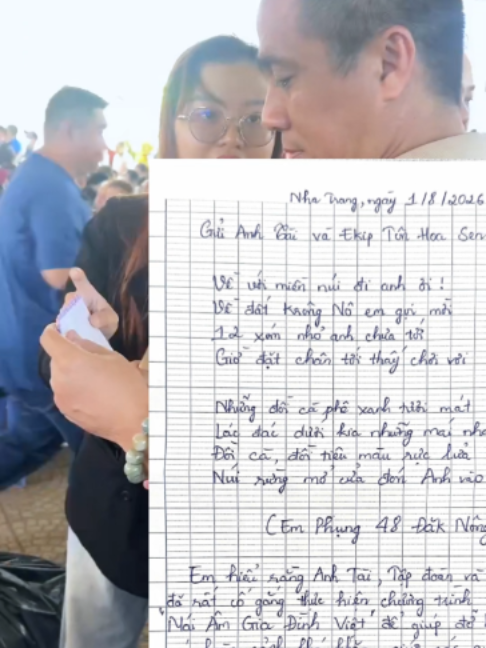 Nha Trang, ngày 1/8/2026
Gửi Anh Tài và Ekip Tôn Hoa Sen
Về với miền núi đi anh ơi !
Về đất Krông Nô em gọi mời
12 xóm nhỏ anh chưa tới
Giờ đặt chân tới thấy chơi vơi
Những đồi cà phê xanh tươi mát
Lác đác dưới kia những mái nhà
Đồi cà, đồi tiêu màu rực lửa
Núi rừng mở cửa đón Anh vào
(Em Phụng 48 Đăk Nông
Em hiểu rằng Anh Tài, Tập đoàn và
đã rất cố gắng thực hiện chương trình
"Mái Ấm Gia Đình Việt" để giúp đỡ